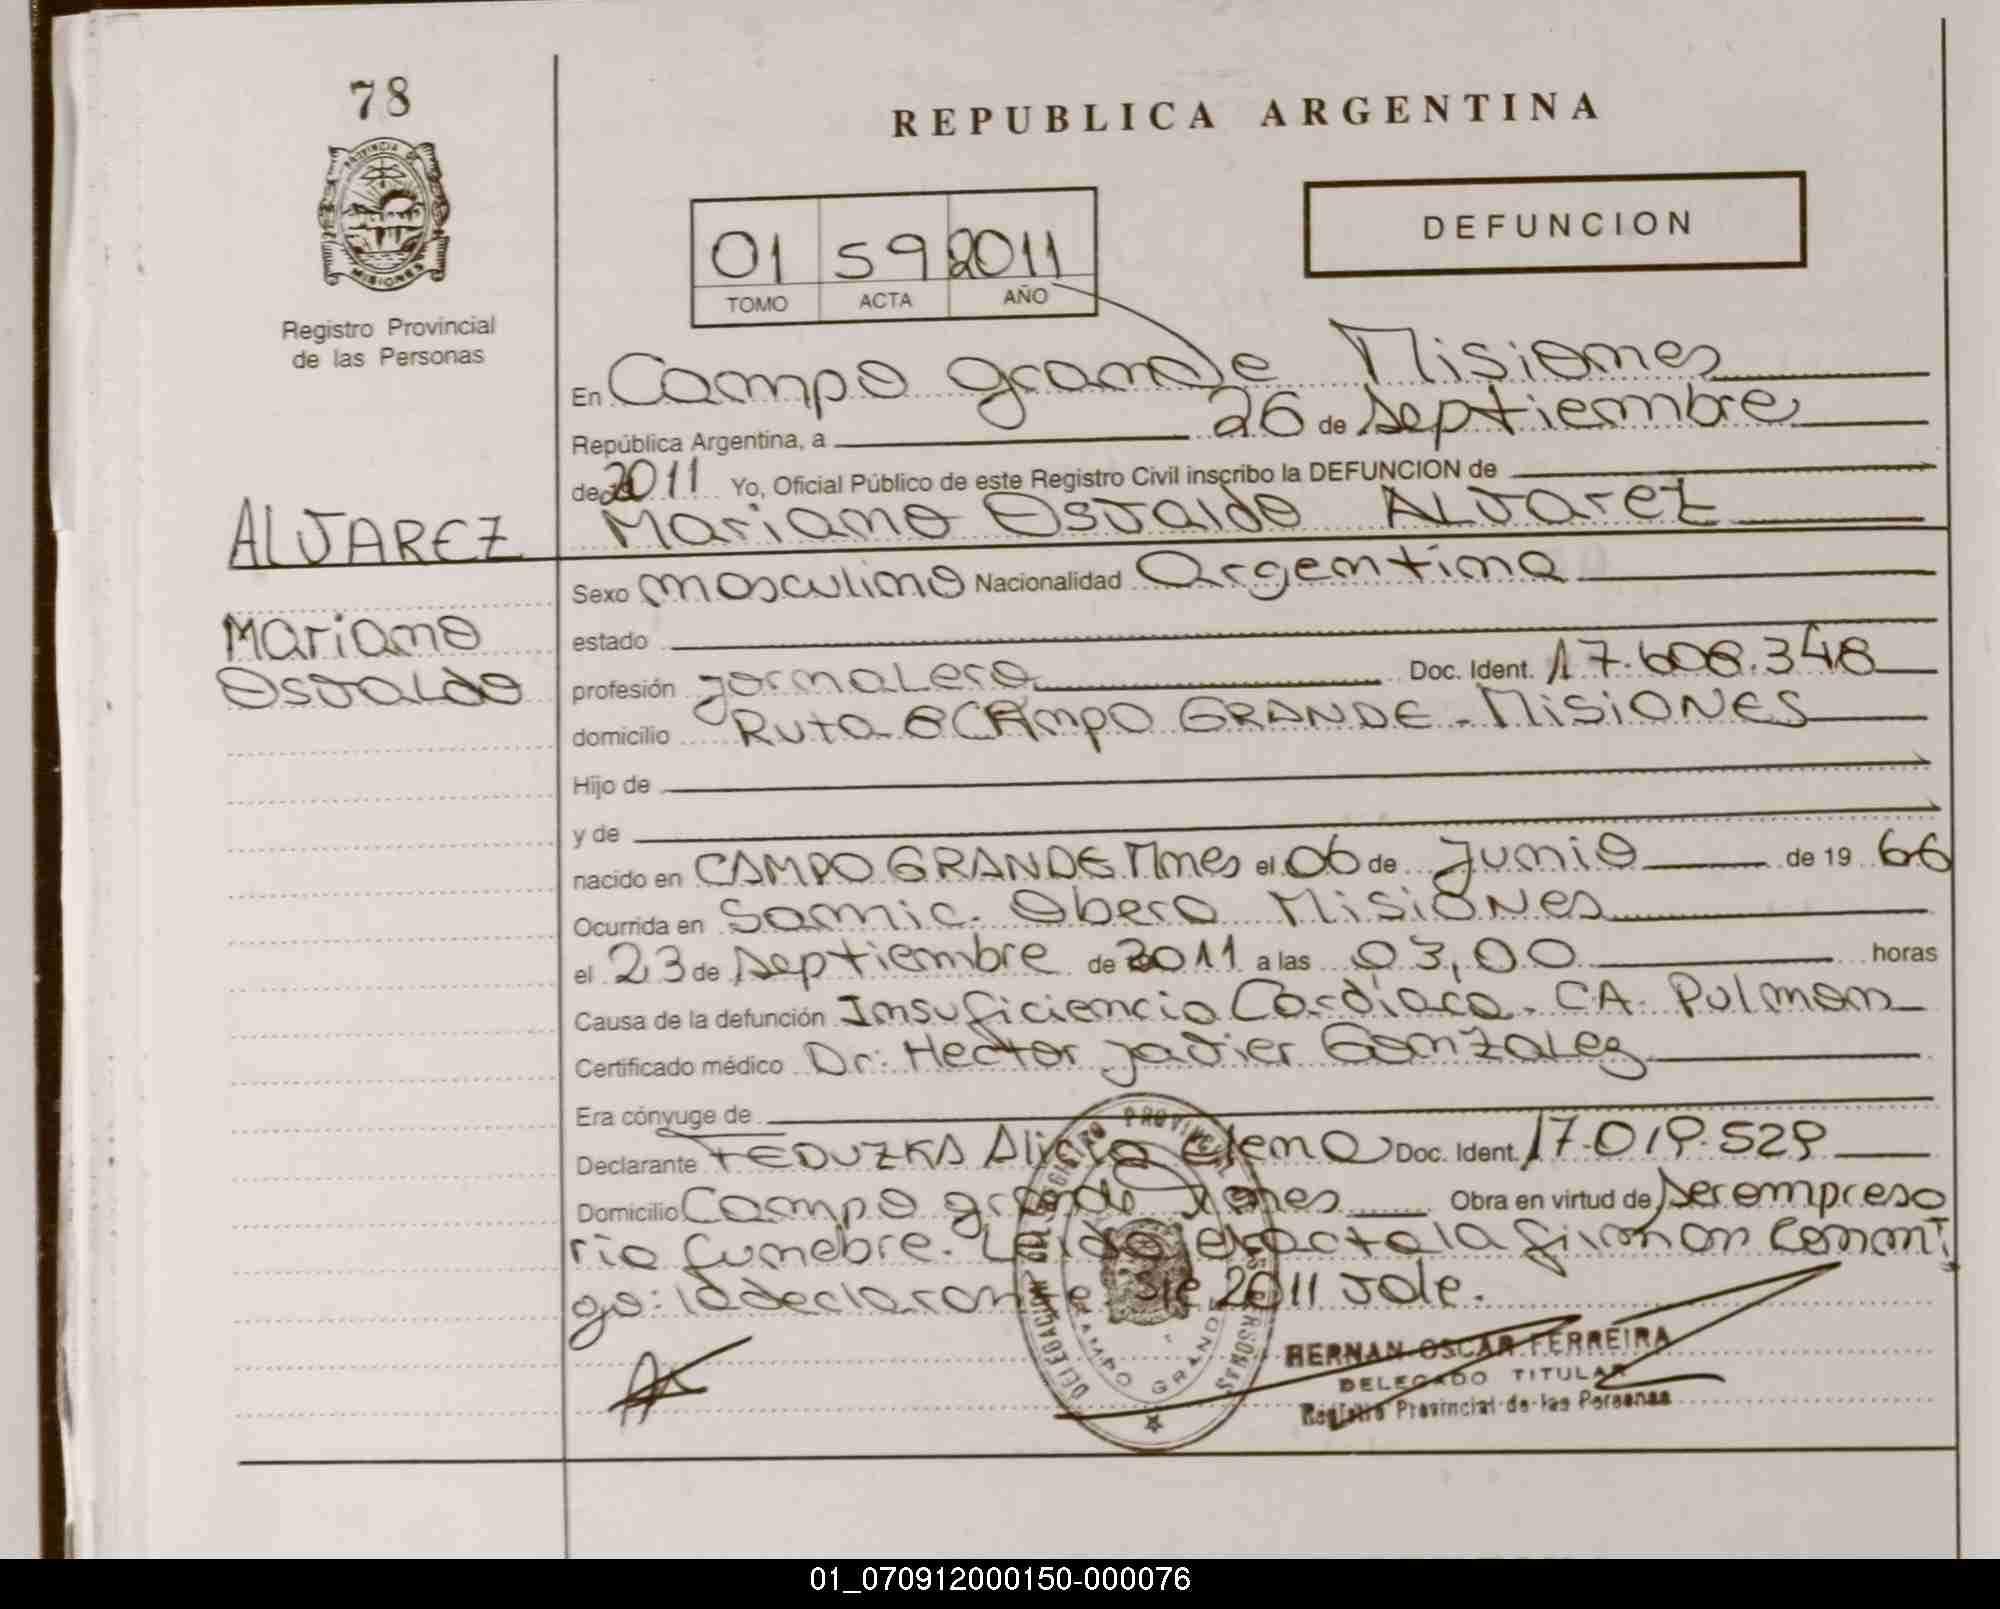 78
REPUBLICA ARGENTINA
PROVINCIA DE
MISIONES
Registro Provincial
de las Personas
DEFUNCION
01 59 2011
TOMO ACTA AÑO
En Campo grande Misiones
República Argentina, a 26 de septiembre
de 2011 Yo, Oficial Público de este Registro Civil inscribo la DEFUNCION de
ALVAREZ Mariano Osvaldo ALvarez
Mariano
OsvaLdo
Sexo masculino Nacionalidad Argentina
estado
profesión jornaLero Doc. Ident. 17.608.348
domicilio Ruta 8 CAmpO GRANDE - MisiONES
Hijo de
y de
nacido en CAMPO GRANDE Mnes el 06 de Junio de 19 66
Ocurrida en Samic. Obera MisiONes
el 23 de septiembre de 2011 a las 03,00 horas
Causa de la defunción Insuficiencia Cardiaca. CA. Pulmon
Certificado médico Dr: Hector javier GonzaLez
Era cónyuge de
Declarante TEDUZKA Alicia elena Doc. Ident. 17.019.529
Domicilio Campo grande Mnes Obra en virtud de ser empresa
ria funebre. Leida el acta la firman conmi
go: la declarante. S/e 2011 vale.
DELEGACION DEL REGISTRO PROVINCIAL DE LAS PERSONAS
CAMPO GRANDE
HERNAN OSCAR FERREIRA
DELEGADO TITULAR
Registro Provincial de las Personas
01_070912000150-000076